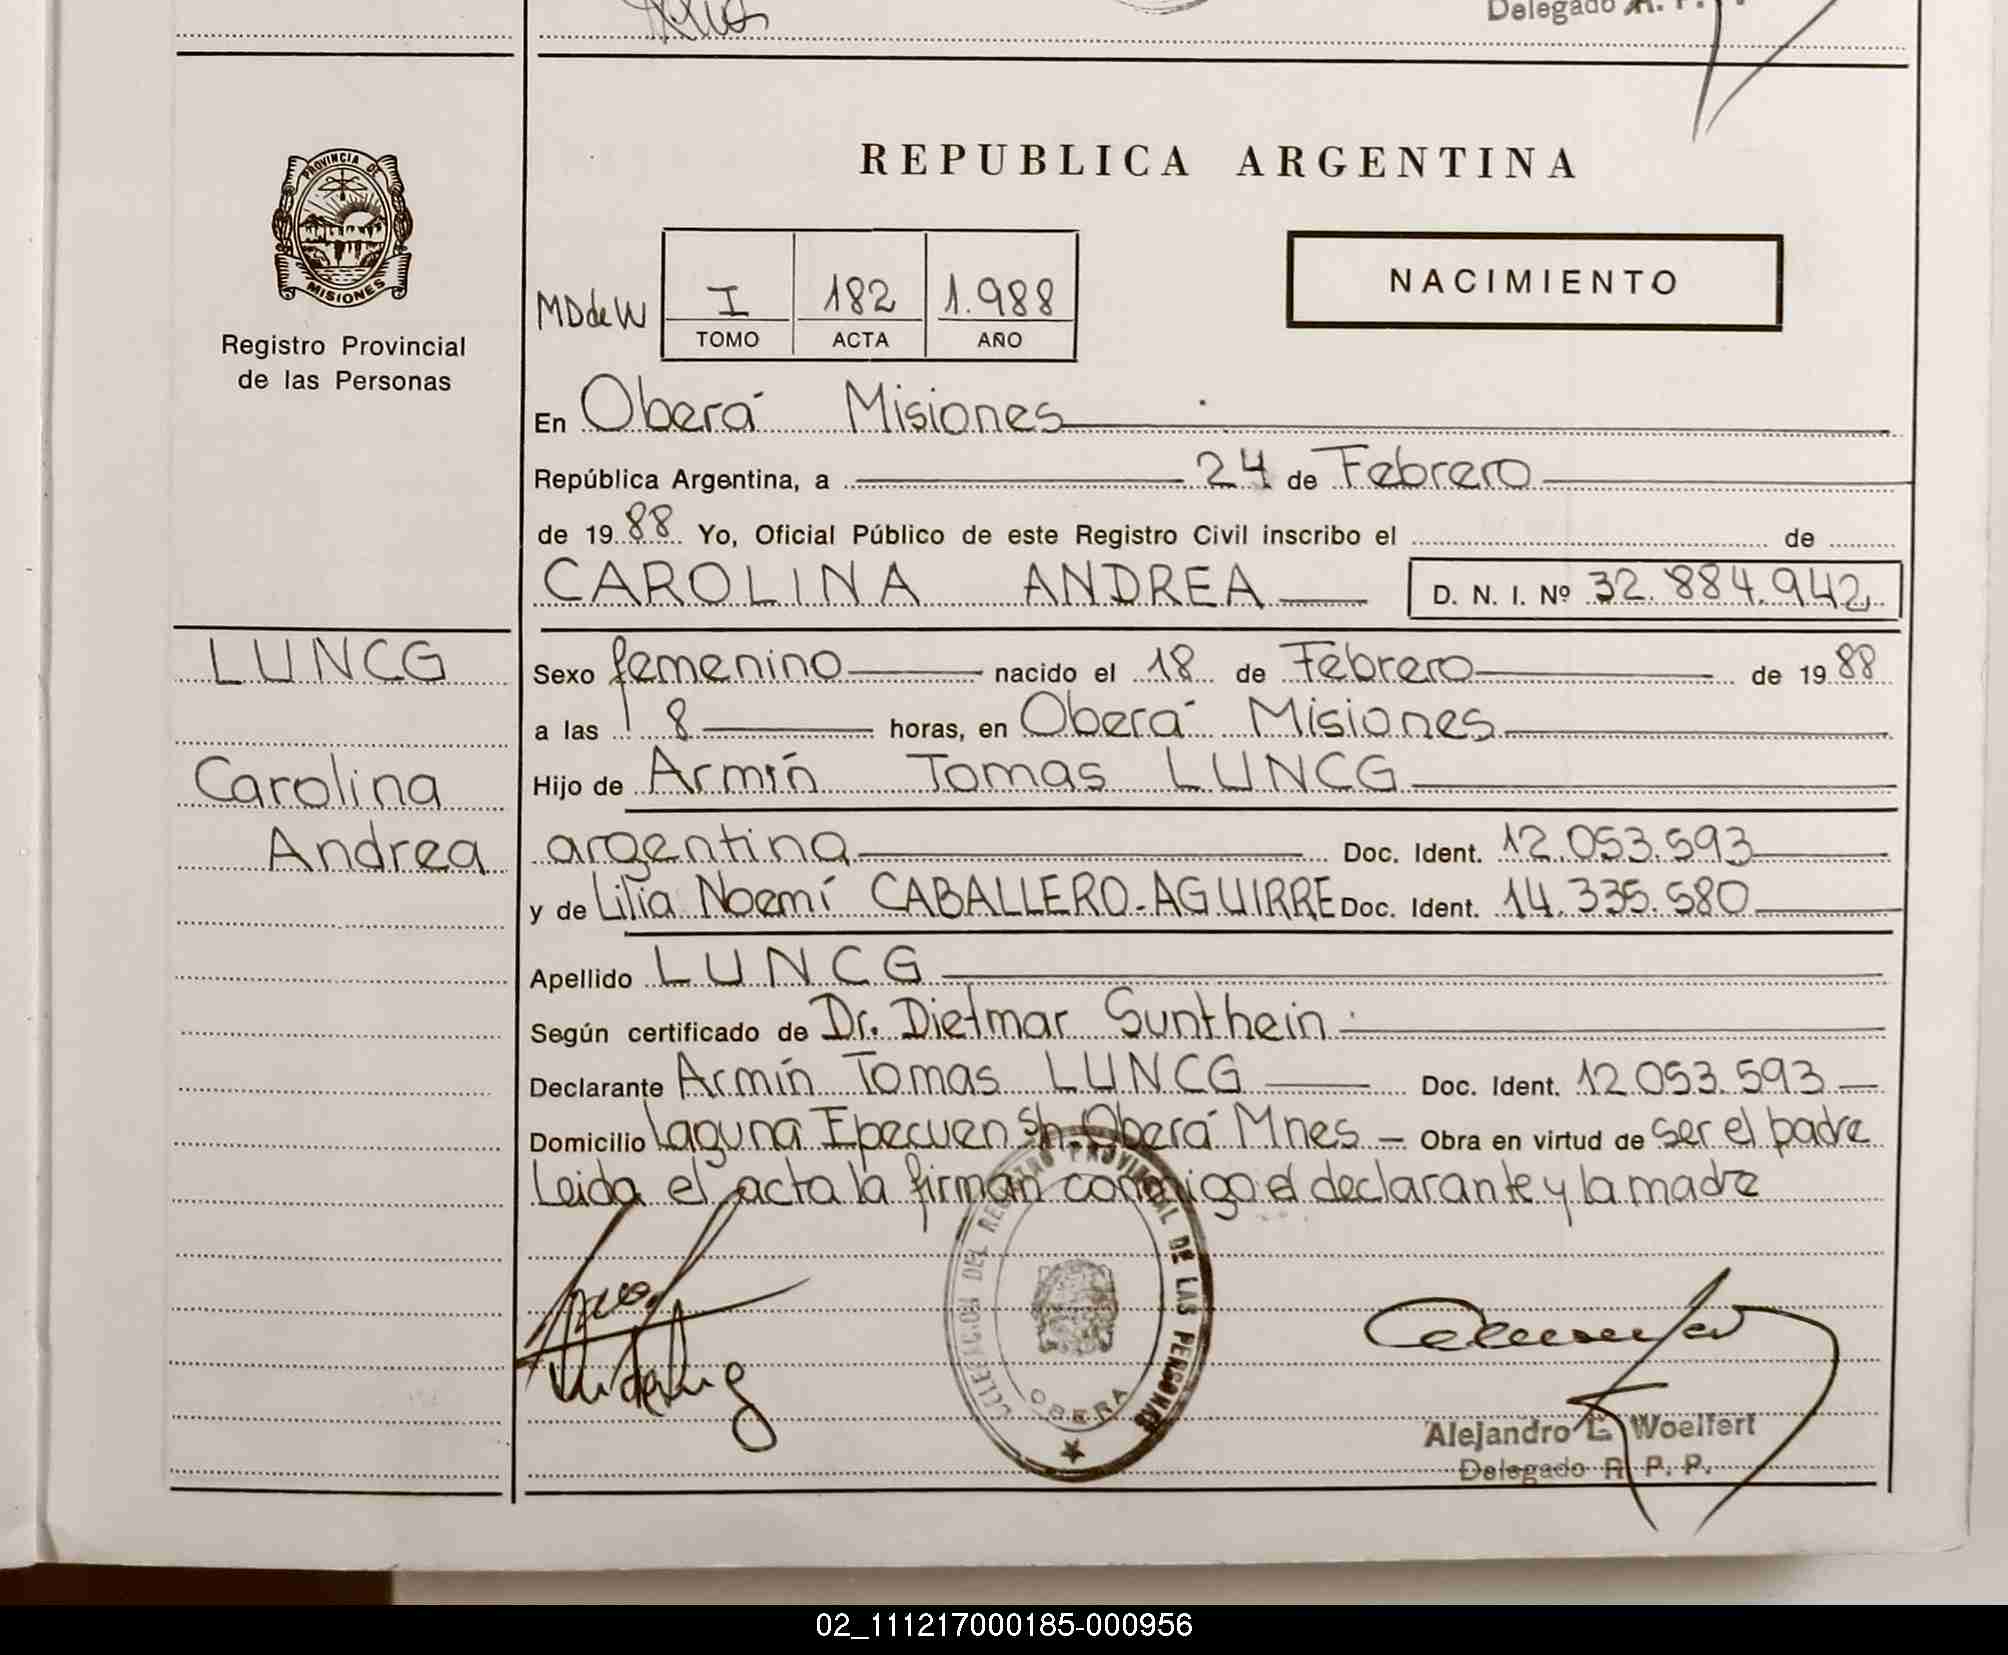 Delegado R. P. P.
REPUBLICA ARGENTINA
PROVINCIA DE
MISIONES
Registro Provincial
de las Personas
MDdeW
I 182 1.988
TOMO ACTA AÑO
NACIMIENTO
En Oberá Misiones
República Argentina, a 24 de Febrero
de 19 88 Yo, Oficial Público de este Registro Civil inscribo el de
CAROLINA ANDREA D. N. I. Nº 32.884.942
LUNCG
Carolina
Andrea
Sexo femenino nacido el 18 de Febrero de 19 88
a las 8 horas, en Oberá Misiones
Hijo de Armín Tomas LUNCG
argentina Doc. Ident. 12.053.593
y de Lilia Noemí CABALLERO-AGUIRRE Doc. Ident. 14.335.580
Apellido LUNCG
Según certificado de Dr. Dietmar Sunthein
Declarante Armín Tomas LUNCG Doc. Ident. 12.053.593
Domicilio Laguna Epecuen S/n. Oberá Mnes - Obra en virtud de ser el padre
Leida el acta la firman conmigo el declarante y la madre
DELEGACION DEL REGISTRO PROVINCIAL DE LAS PERSONAS
OBERA
Alejandro L. Woelfert
Delegado R. P. P.
02_111217000185-000956